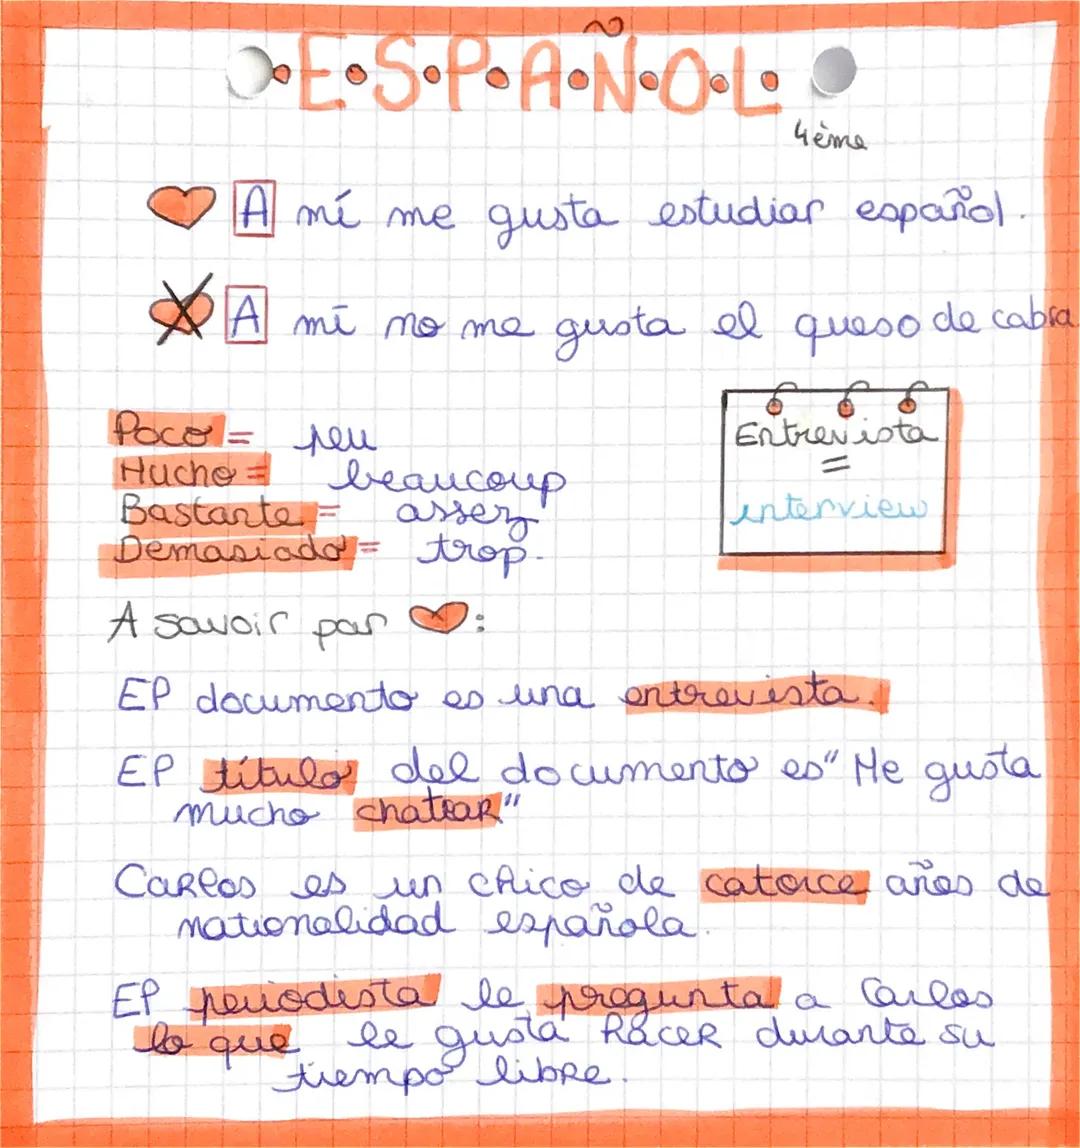 E.S.P.A.Ñ.O.L.
4ème
A mí me gusta estudiar español.
A mí no me gusta el queso de cabra
Poco = peu
Mucho = beaucoup
Bastante = assez
Demasiado = trop.
Entrevista
=
interview
A savoir par ♥:
El documento es una entrevista.
El título del documento es "Me gusta
mucho chatear"
Carlos es un chico de catorce años de
nationalidad española.
El periodista le pregunta a Carlos
lo que le gusta hacer durante su
tiempo libre.